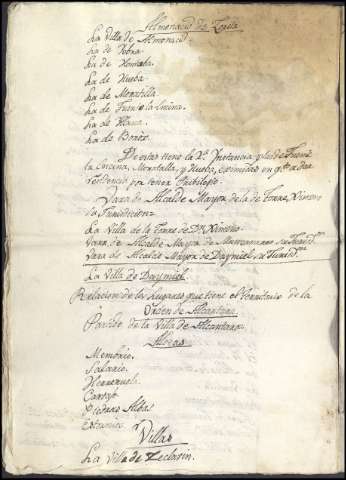 Almonacid de Zorita
La Villa de Almonacid
La de Zobra
La de
La de Hueba
La de Moratilla
La de Fuente la Encina
La de Illana
La de Borox
De estas tiene la 2ª Instancia y las de Fuente
la Encina, Moratalla, y Hueba, eximidas en qto a dar
residencia por tener Privilegio
Vara de Alcalde Mayor de la de Torre, Ximeno
su Jurisdicion
La Villa de la Torre de Dn Ximeno
Vara de Alcalde Mayor de Manzanares su Jurisdn
Vara de Alcalde Mayor de Daymiel, su Jurisdn
La Villa de Daymiel
Relacion de los Lugares que tiene el territorio de la
Orden de Alcantara
Partido de la Villa de Alcantara
Aldeas
Membrio
Salorio
Herreruela
Carbajo
Piedras Albas
Estorninos
Villas
La Villa de Zeclavin.